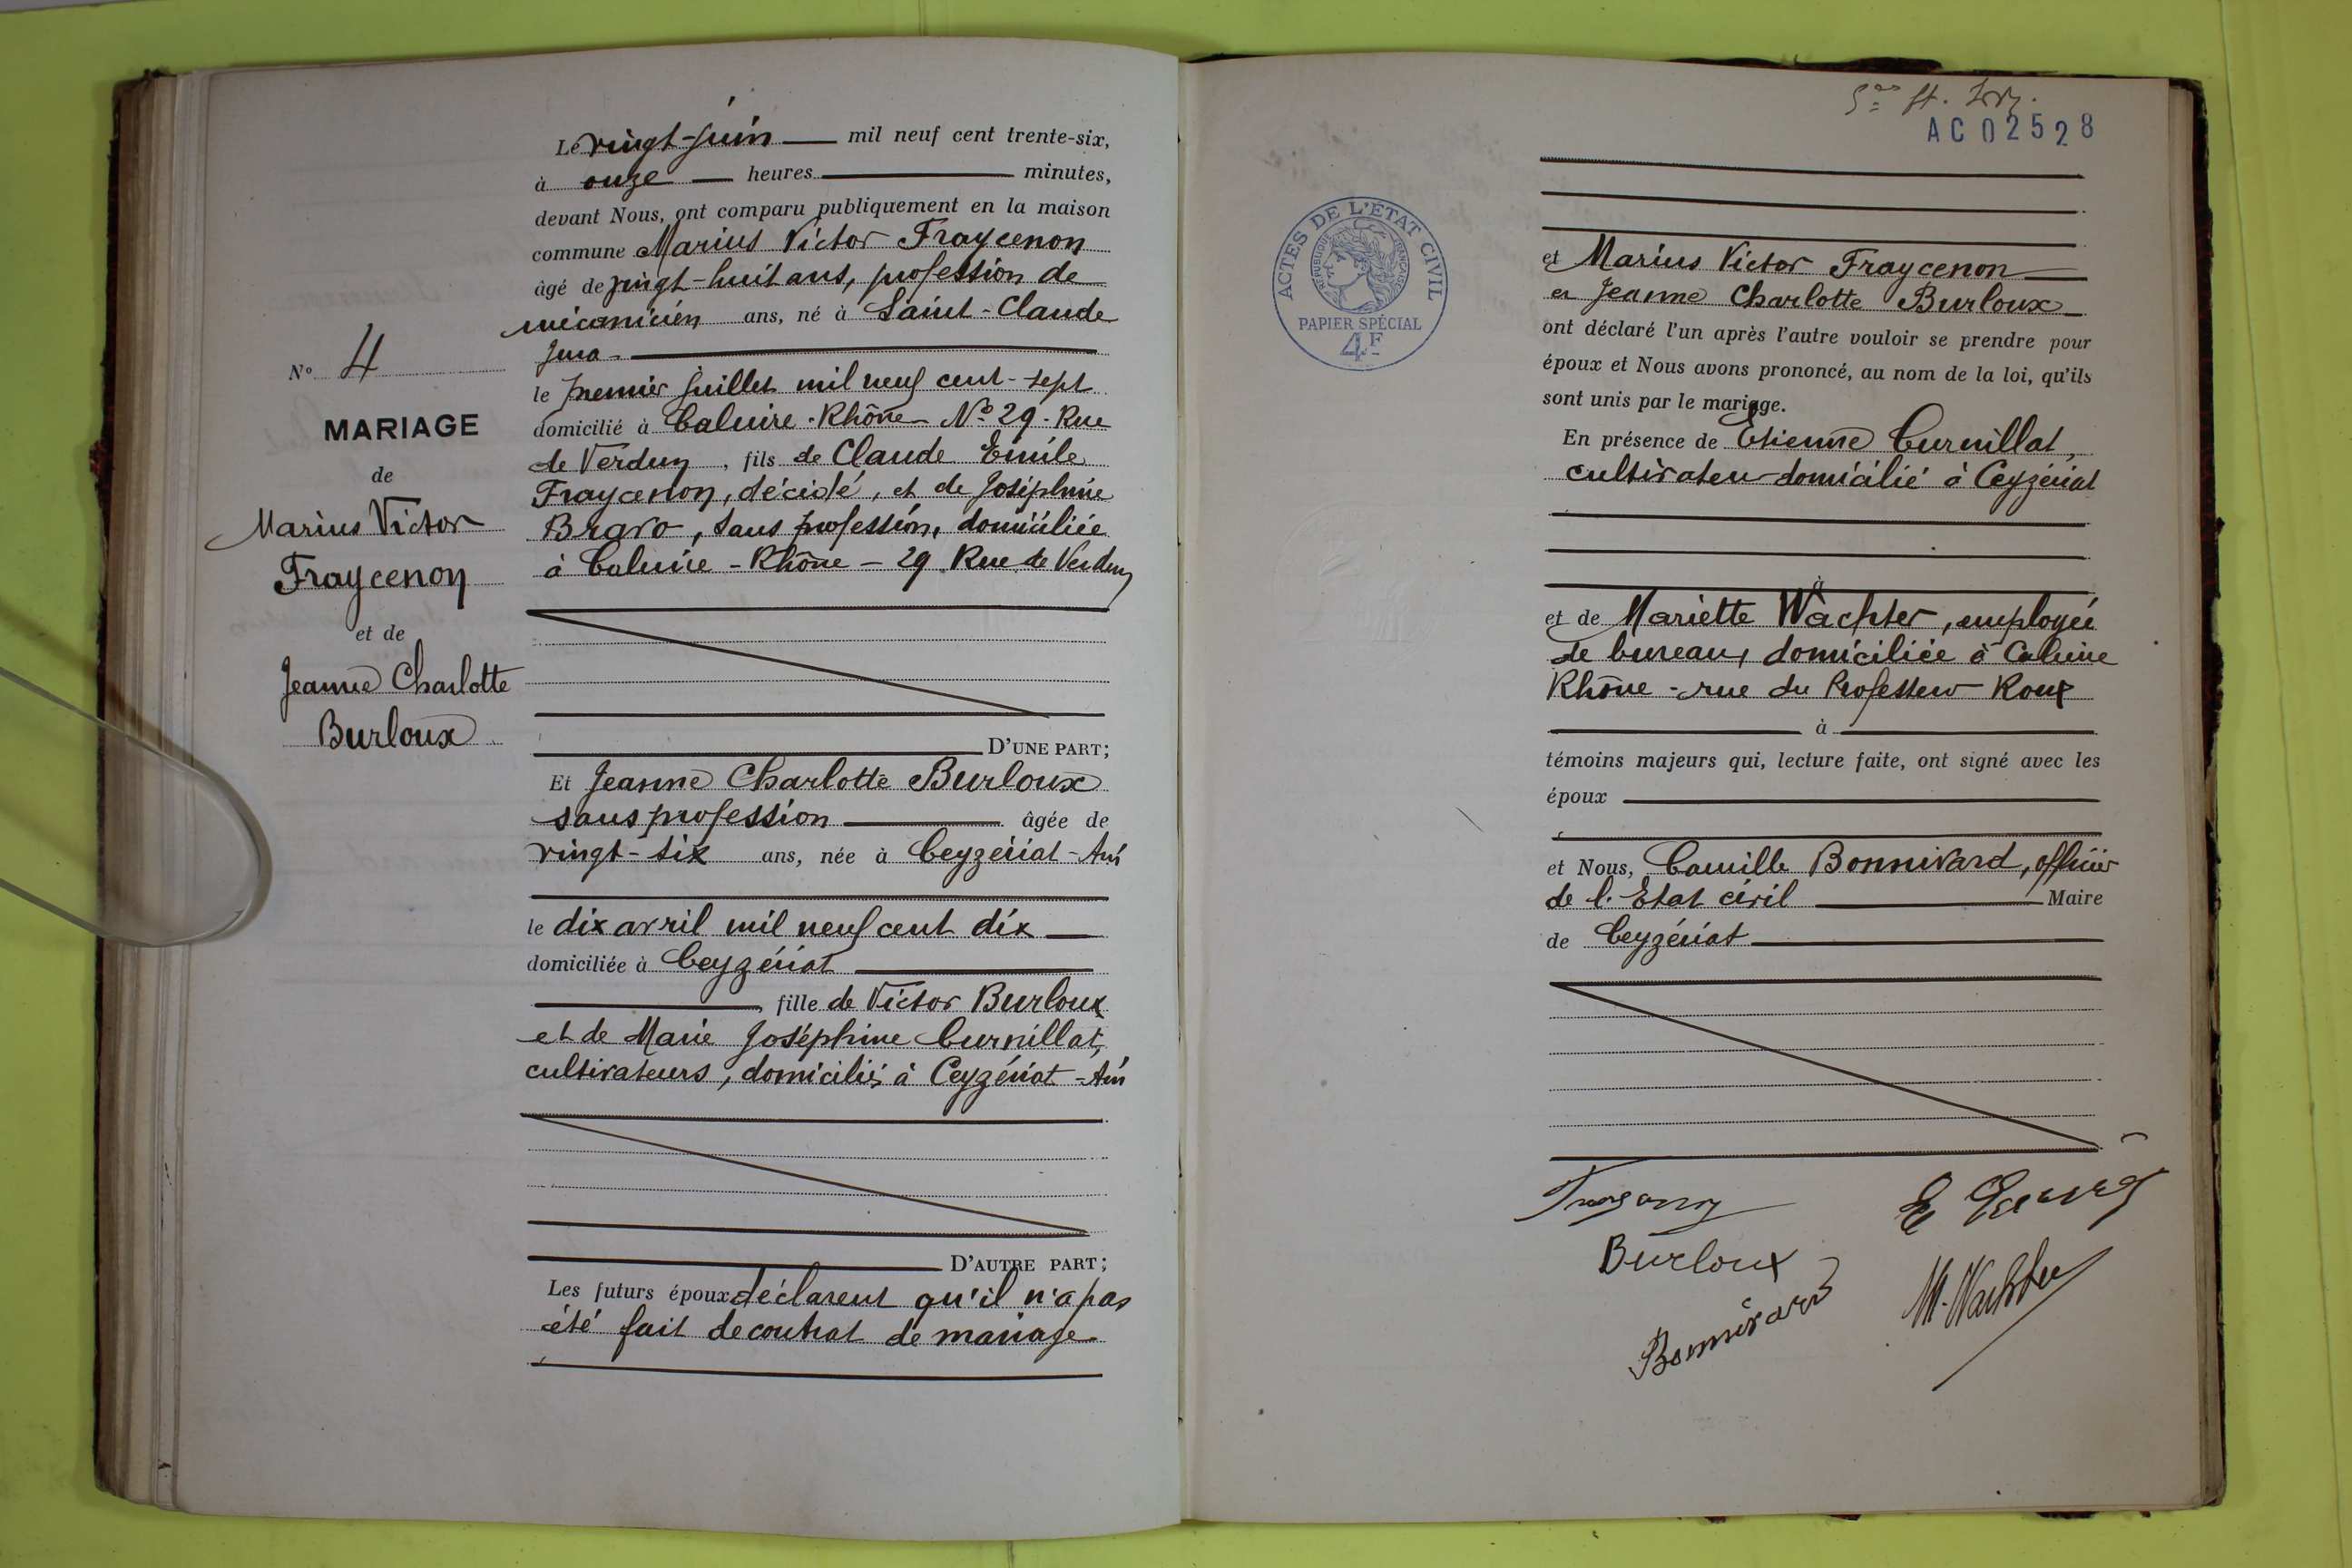 Le vingt-juin mil neuf cent trente-six,
à onze heures minutes,
devant Nous, ont comparu publiquement en la maison
commune Marius Victor Fraycenon
âgé de vingt-huit ans, profession de
mécanicien ans, né à Saint-Claude
Jura -
le premier Juillet mil neuf cent-sept
domicilié à Caluire - Rhône - No 29 - Rue
de Verdun, fils de Claude Emile
Fraycenon, décédé, et de Joséphine
Bravo, sans profession, domiciliée
à Caluire - Rhône - 29 Rue de Verdun
No 4
MARIAGE
de
Marius Victor
Fraycenon
et de
Jeanne Charlotte
Burloux
D'UNE PART;
Et Jeanne Charlotte Burloux
sans profession âgée de
vingt-six ans, née à Ceyzériat - Ain
le dix avril mil neuf cent dix
domiciliée à Ceyzériat
fille de Victor Burloux
et de Marie Joséphine Curnillat,
cultivateurs, domiciliés à Ceyzériat - Ain
D'AUTRE PART;
Les futurs époux déclarent qu'il n'a pas
été fait de contrat de mariage
AC02528
ACTES DE L'ÉTAT CIVIL
RÉPUBLIQUE FRANÇAISE
PAPIER SPÉCIAL
4F
et Marius Victor Fraycenon
et Jeanne Charlotte Burloux
ont déclaré l'un après l'autre vouloir se prendre pour
époux et Nous avons prononcé, au nom de la loi, qu'ils
sont unis par le mariage.
En présence de Etienne Curnillat,
cultivateur domicilié à Ceyzériat
à
et de Mariette Wachter, employée
de bureau, domiciliée à Caluire
Rhône - rue du Professeur Roux
à
témoins majeurs qui, lecture faite, ont signé avec les
époux
et Nous, Camille Bonnivard, officier
de l'Etat civil Maire
de Ceyzériat
Burloux
Bonnivard
M. Wachter